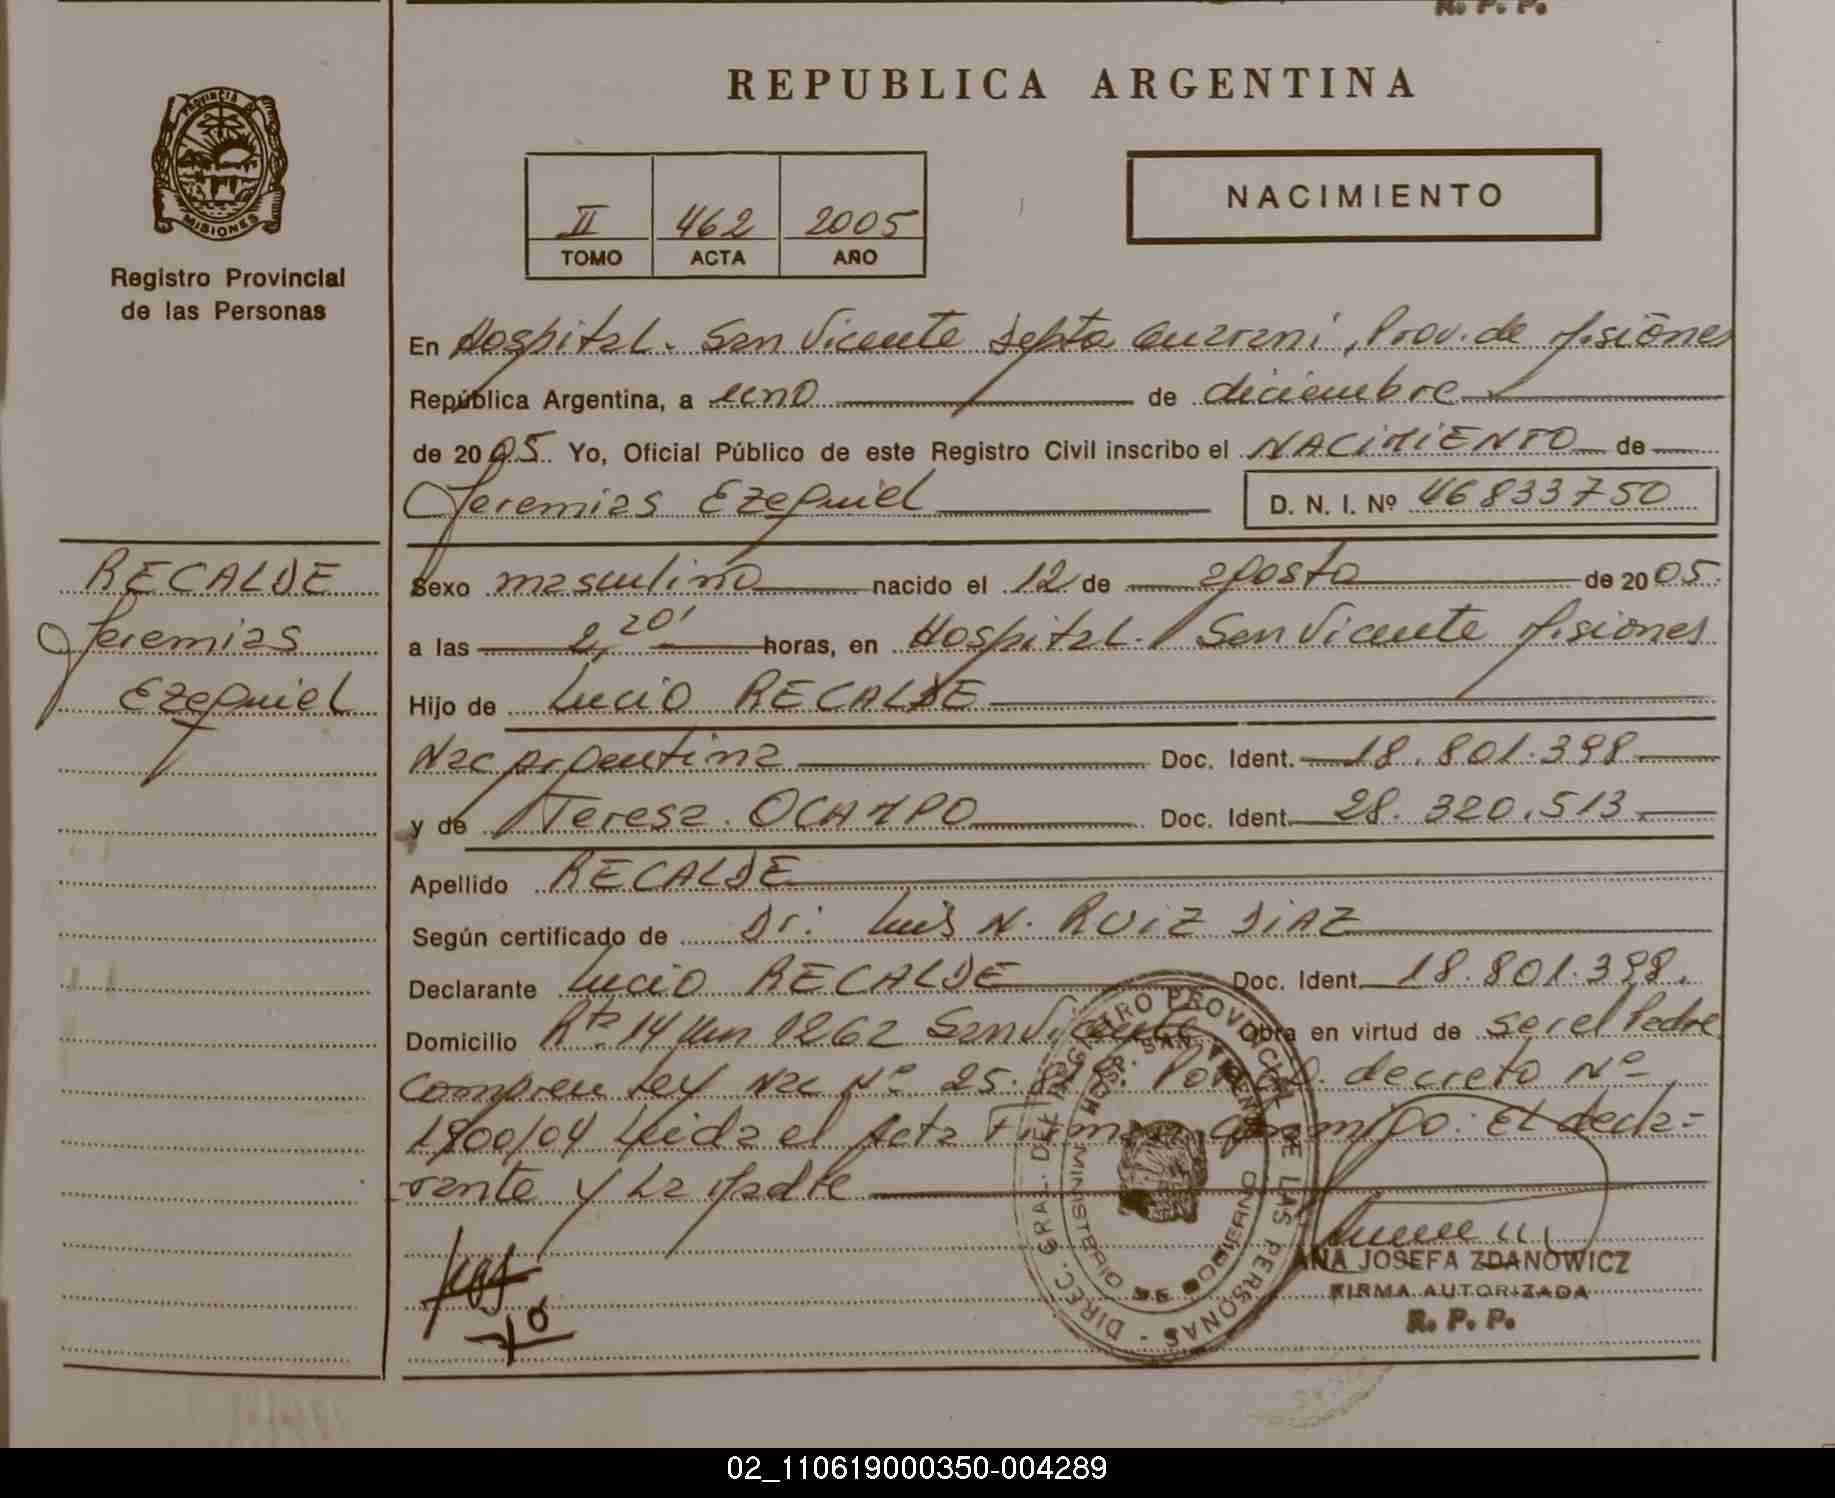 R. P. P.
REPUBLICA ARGENTINA
PROVINCIA DE
MISIONES
Registro Provincial
de las Personas
II 462 2005
TOMO ACTA AÑO
NACIMIENTO
En Hospital. San Vicente Depto Guarani, Prov. de Misiones
República Argentina, a uno de diciembre
de 2005. Yo, Oficial Público de este Registro Civil inscribo el NACIMIENTO de
Jeremias Ezequiel D. N. I. Nº 46833750
RECALDE
Jeremias
Ezequiel
Sexo masculino nacido el 12 de agosto de 2005.
a las 2,20' horas, en Hospital. San Vicente Misiones
Hijo de Lucio RECALDE
Nac Argentina Doc. Ident. 18.801.398
y de Teresa. OCAMPO Doc. Ident. 28.320.513
Apellido RECALDE
Según certificado de Dr: Luis N. RUIZ DIAZ
Declarante Lucio RECALDE Doc. Ident. 18.801.398.
Domicilio Rta. 14 Km 1262 San Vicente Obra en virtud de ser el Padre
Ley Nac Nº 25. decreto Nº
1900/04 Leida el Acta Firman conmigo: El decla=
rante y La Madre
DIREC. GRAL. DEL REGISTRO PROVINCIAL DE LAS PERSONAS
HOSP. SAN VICENTE
MINISTERIO DE GOBIERNO
ANA JOSEFA ZDANOWICZ
FIRMA AUTORIZADA
R. P. P.
02_110619000350-004289